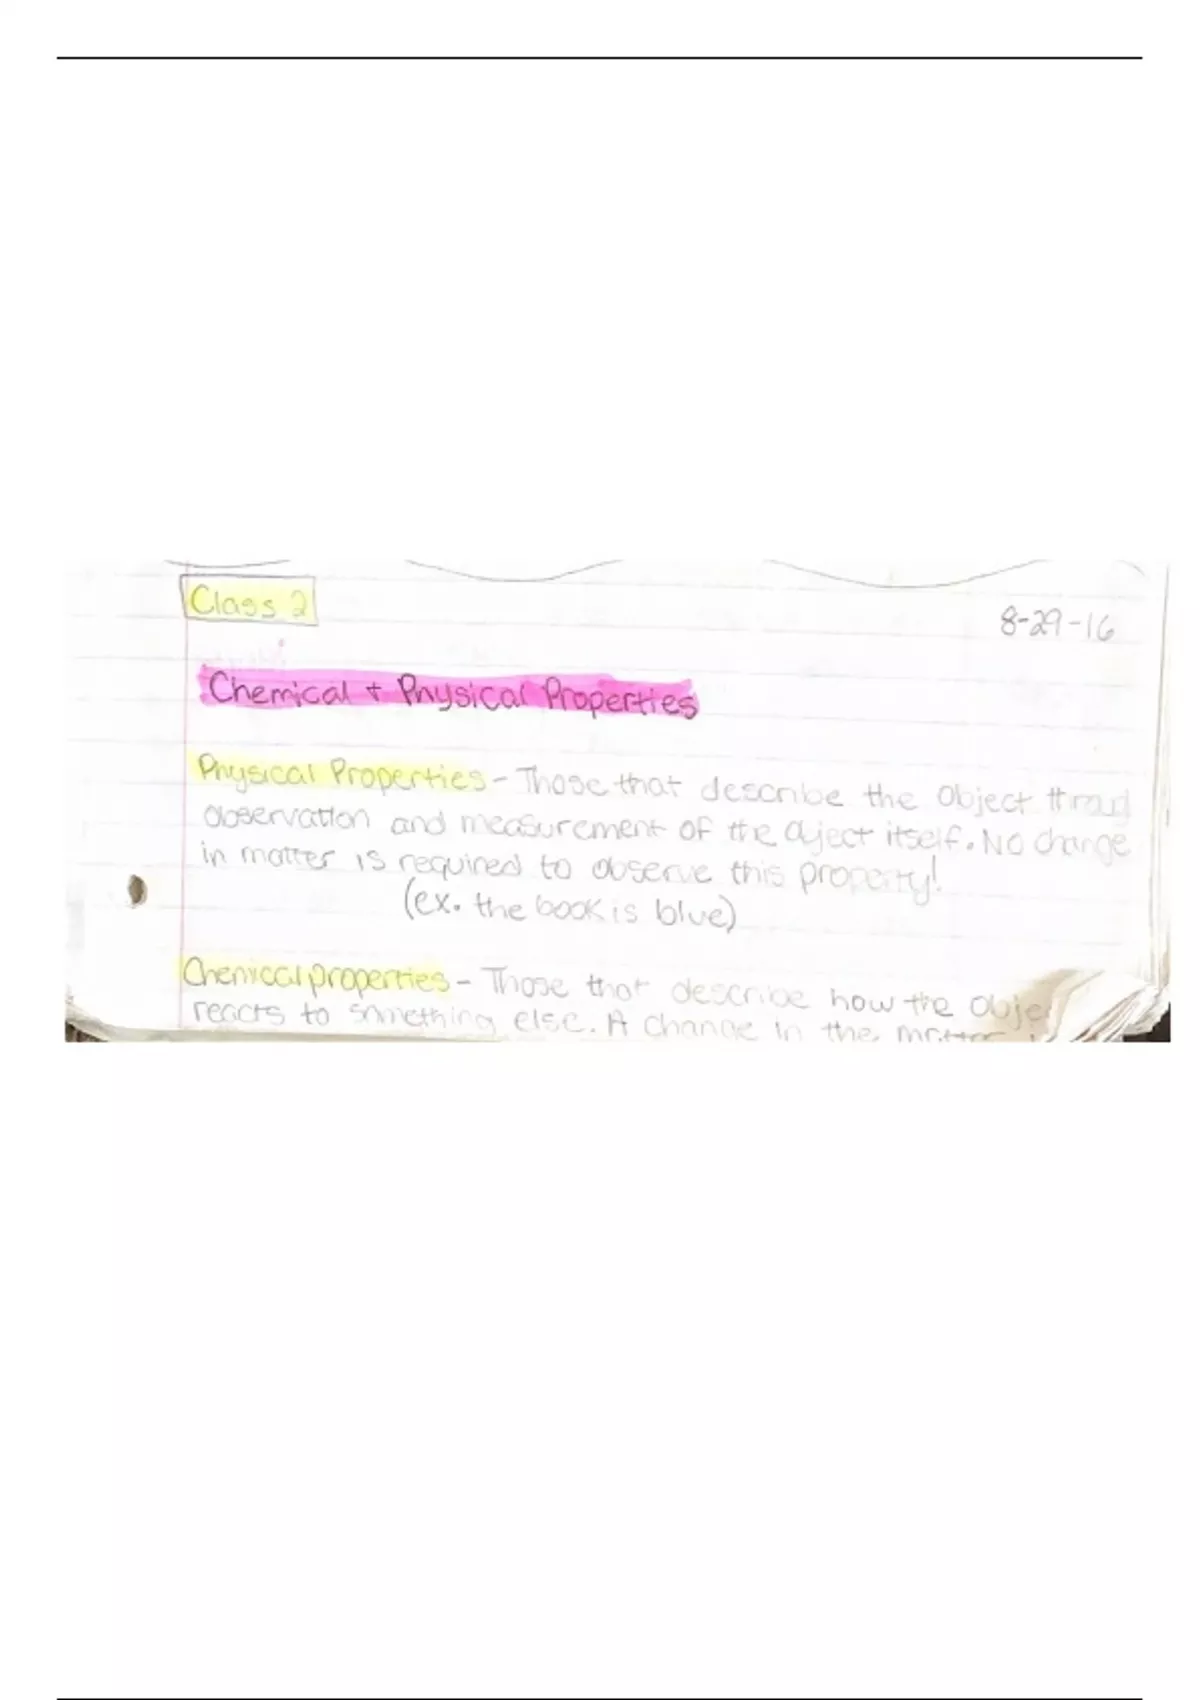 Class 2
8-29-16
Chemical + Physical Properties
Physical Properties - Those that describe the Object throug
observation and measurement of the object itself. No change
in matter is required to observe this property!
(ex. the book is blue)
Chemical properties - Those that describe how the Obje
reacts to something else. A change in the matter